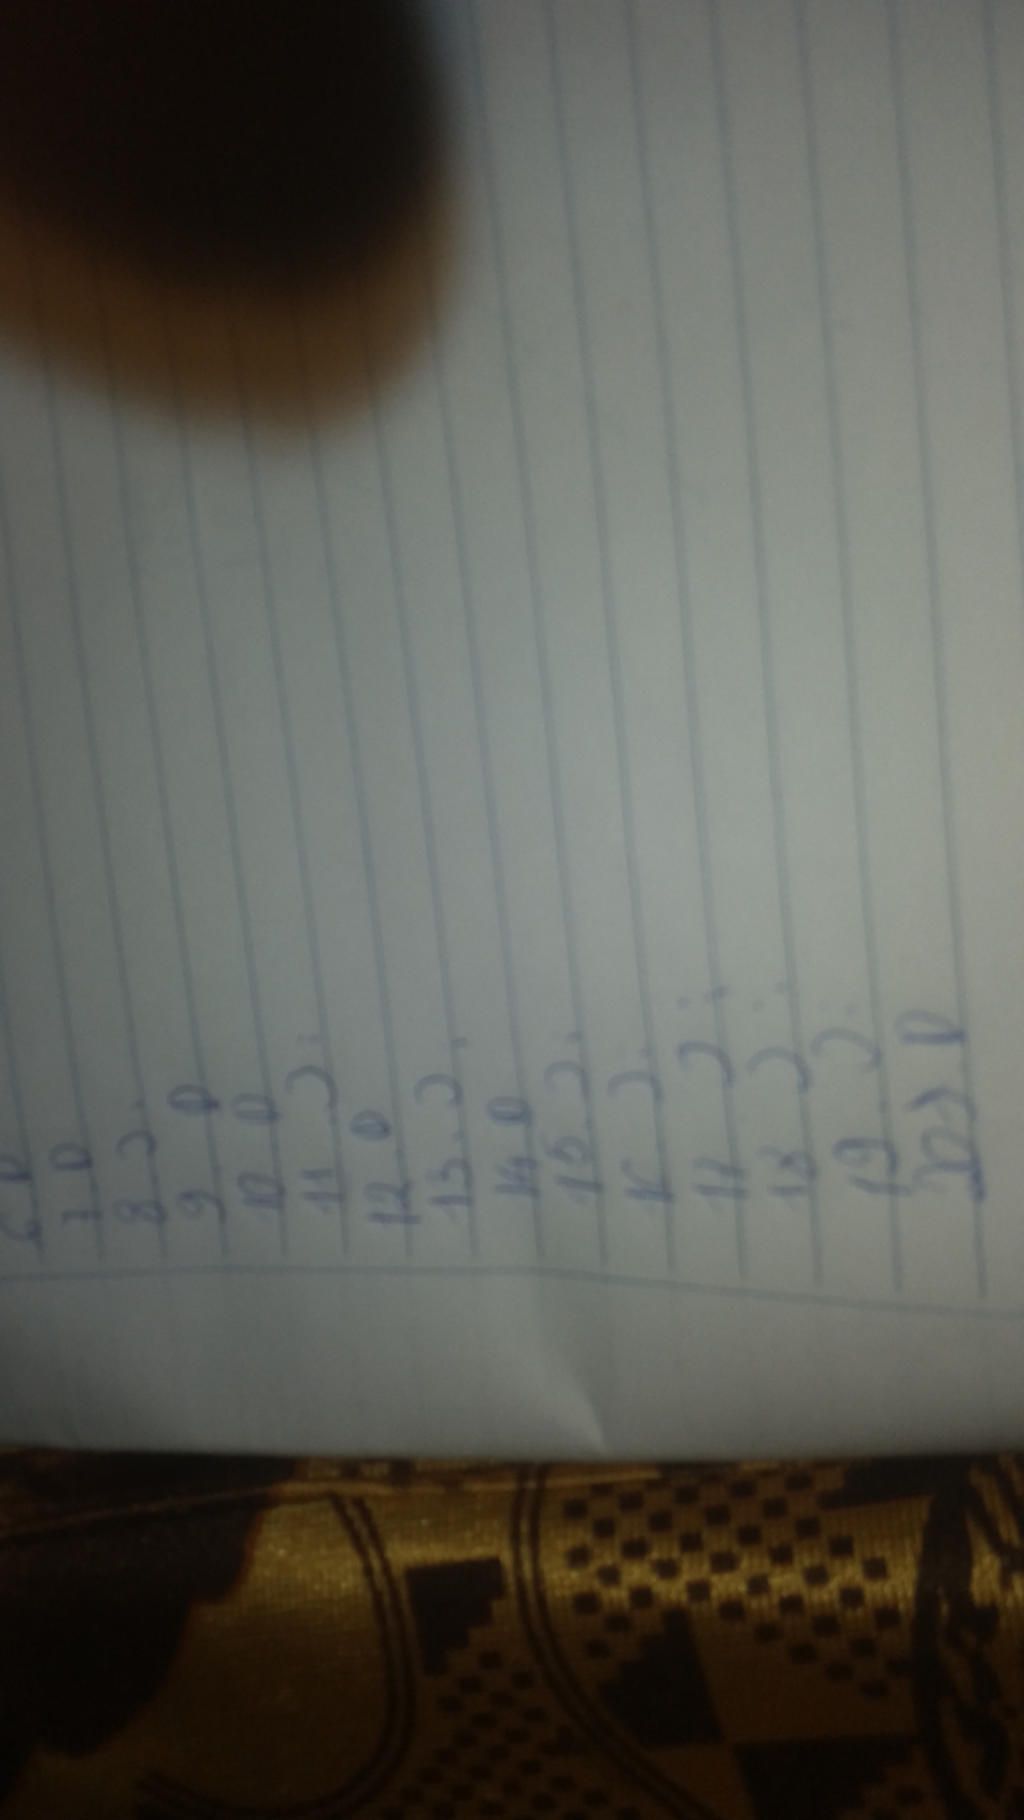 6 D
7 D
8 C.
9 D
10 D
11 C.
12 D
13. C.
14 D
15. C.
16 C.
17 C.
18 C.
19 C.
20) D